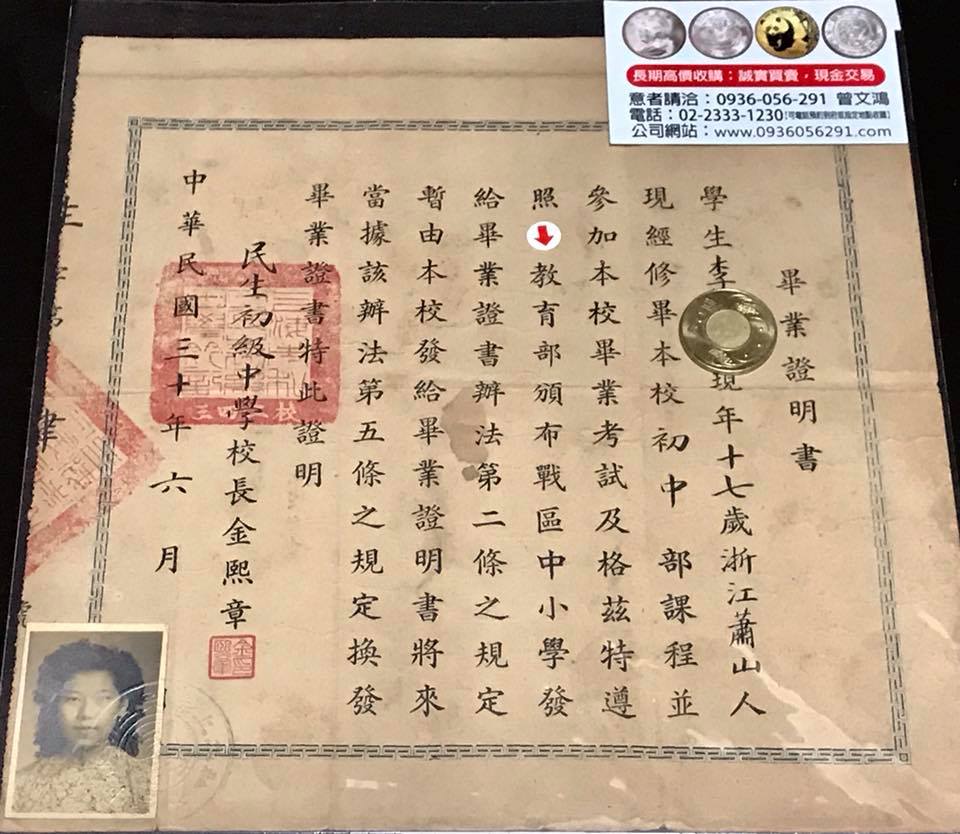 長期高價收購：誠實買賣，現金交易
意者請洽：0936-056-291 曾文鴻
電話：02-2333-1230【可電話預約到府或指定地點收購】
公司網站：www.0936056291.com
畢業證明書
學生李 現年十七歲浙江蕭山人
現經修畢本校初中 部課程並
參加本校畢業考試及格茲特遵
照 教育部頒布戰區中小學發
給畢業證書辦法第二條之規定
暫由本校發給畢業證明書將來
當據該辦法第五條之規定換發
畢業證書特此證明
民生初級中學校長金熙章
中華民國三十年六月